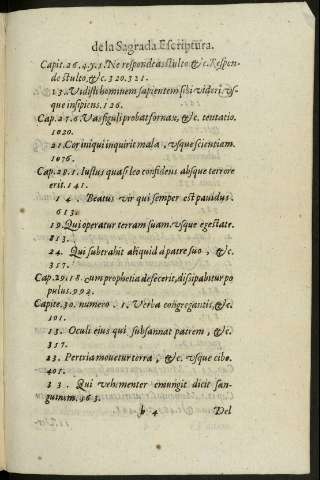 de la Sagrada Escriptura.
Capit. 26. 4. y. 5. Ne respondeas stulto, &c. Respon-
de stulto, &c. 320. 321.
12. Vidisti hominem sapientem sibi videri, vs-
que insipiens. 126.
Cap. 27. 6. Vas figuli probat fornax, &c. tentatio.
1020.
21. Cor iniqui inquirit mala, vsque scientiam.
1076.
Cap. 28. 1. Iustus quasi leo confidens absque terrore
erit. 141.
14. Beatus vir qui semper est pauidus.
613.
19. Qui operatur terram suam. vsque egestate.
813.
24. Qui subtrahit aliquid à patre suo, &c.
357.
Cap. 29. 18. cum prophetia defecerit, dissipabitur po
pulus. 992.
Capite. 30. numero. 1. Verba congregantis, &c.
101.
13. Oculi eius qui subsannat patrem, &c.
317.
23. Per tria mouetur terra, &c. vsque cibo.
401.
33. Qui vehementer emungit elicit san-
guinem. 963.
b 4 Del